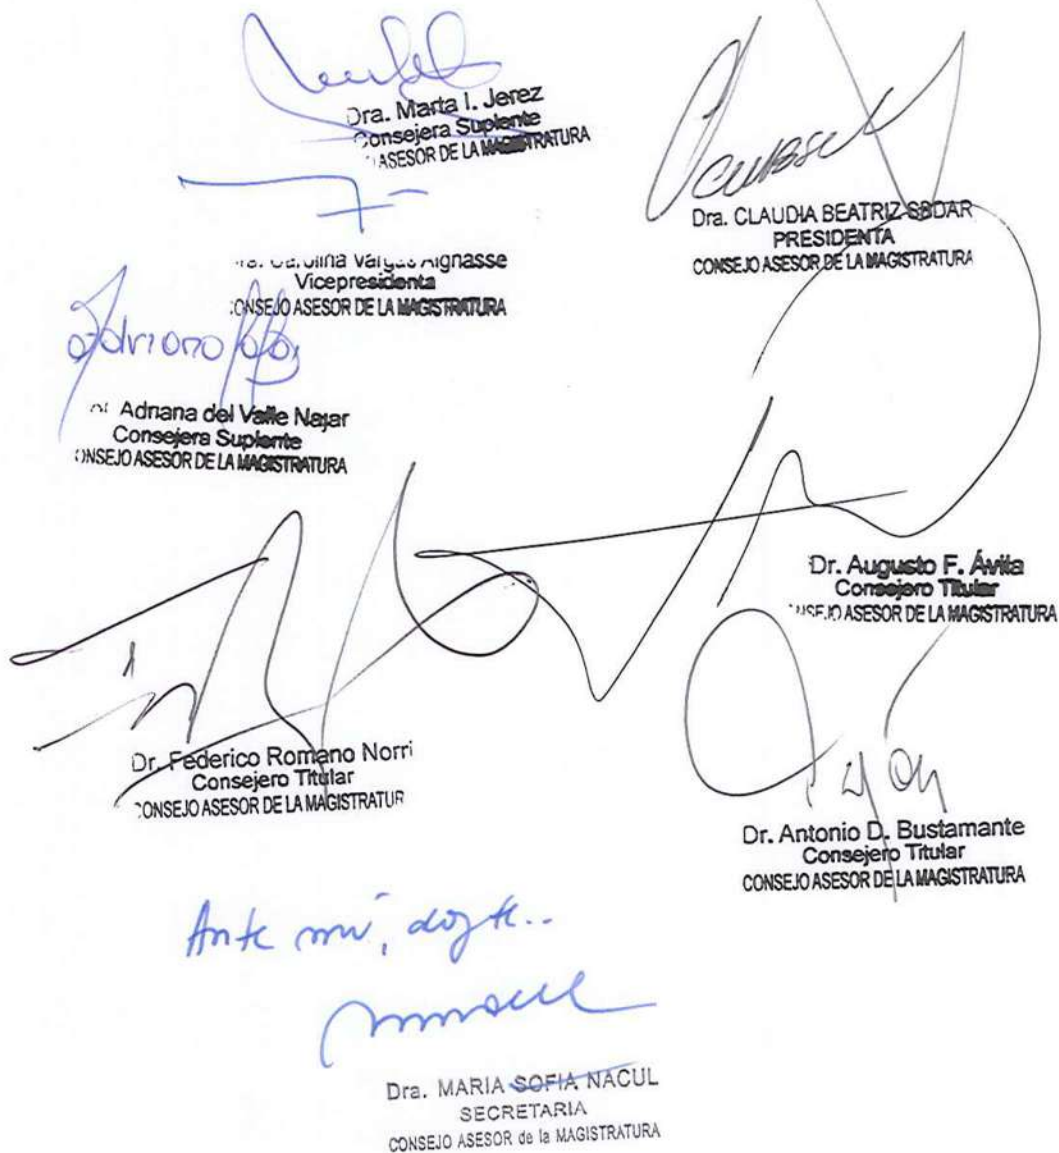 Dra. Marta I. Jerez
Consejera Suplente
ASESOR DE LA MAGISTRATURA
Dra. CLAUDIA BEATRIZ SBDAR
PRESIDENTA
CONSEJO ASESOR DE LA MAGISTRATURA
Carolina Vargas Aignasse
Vicepresidenta
CONSEJO ASESOR DE LA MAGISTRATURA
Adriana del Valle Najar
Consejera Suplente
ONSEJO ASESOR DE LA MAGISTRATURA
Dr. Augusto F. Ávila
Consejero Titular
NSEJO ASESOR DE LA MAGISTRATURA
Dr. Federico Romano Norri
Consejero Titular
CONSEJO ASESOR DE LA MAGISTRATUR
Dr. Antonio D. Bustamante
Consejero Titular
CONSEJO ASESOR DE LA MAGISTRATURA
Ante mí, doy fe..
Dra. MARIA SOFIA NACUL
SECRETARIA
CONSEJO ASESOR de la MAGISTRATURA